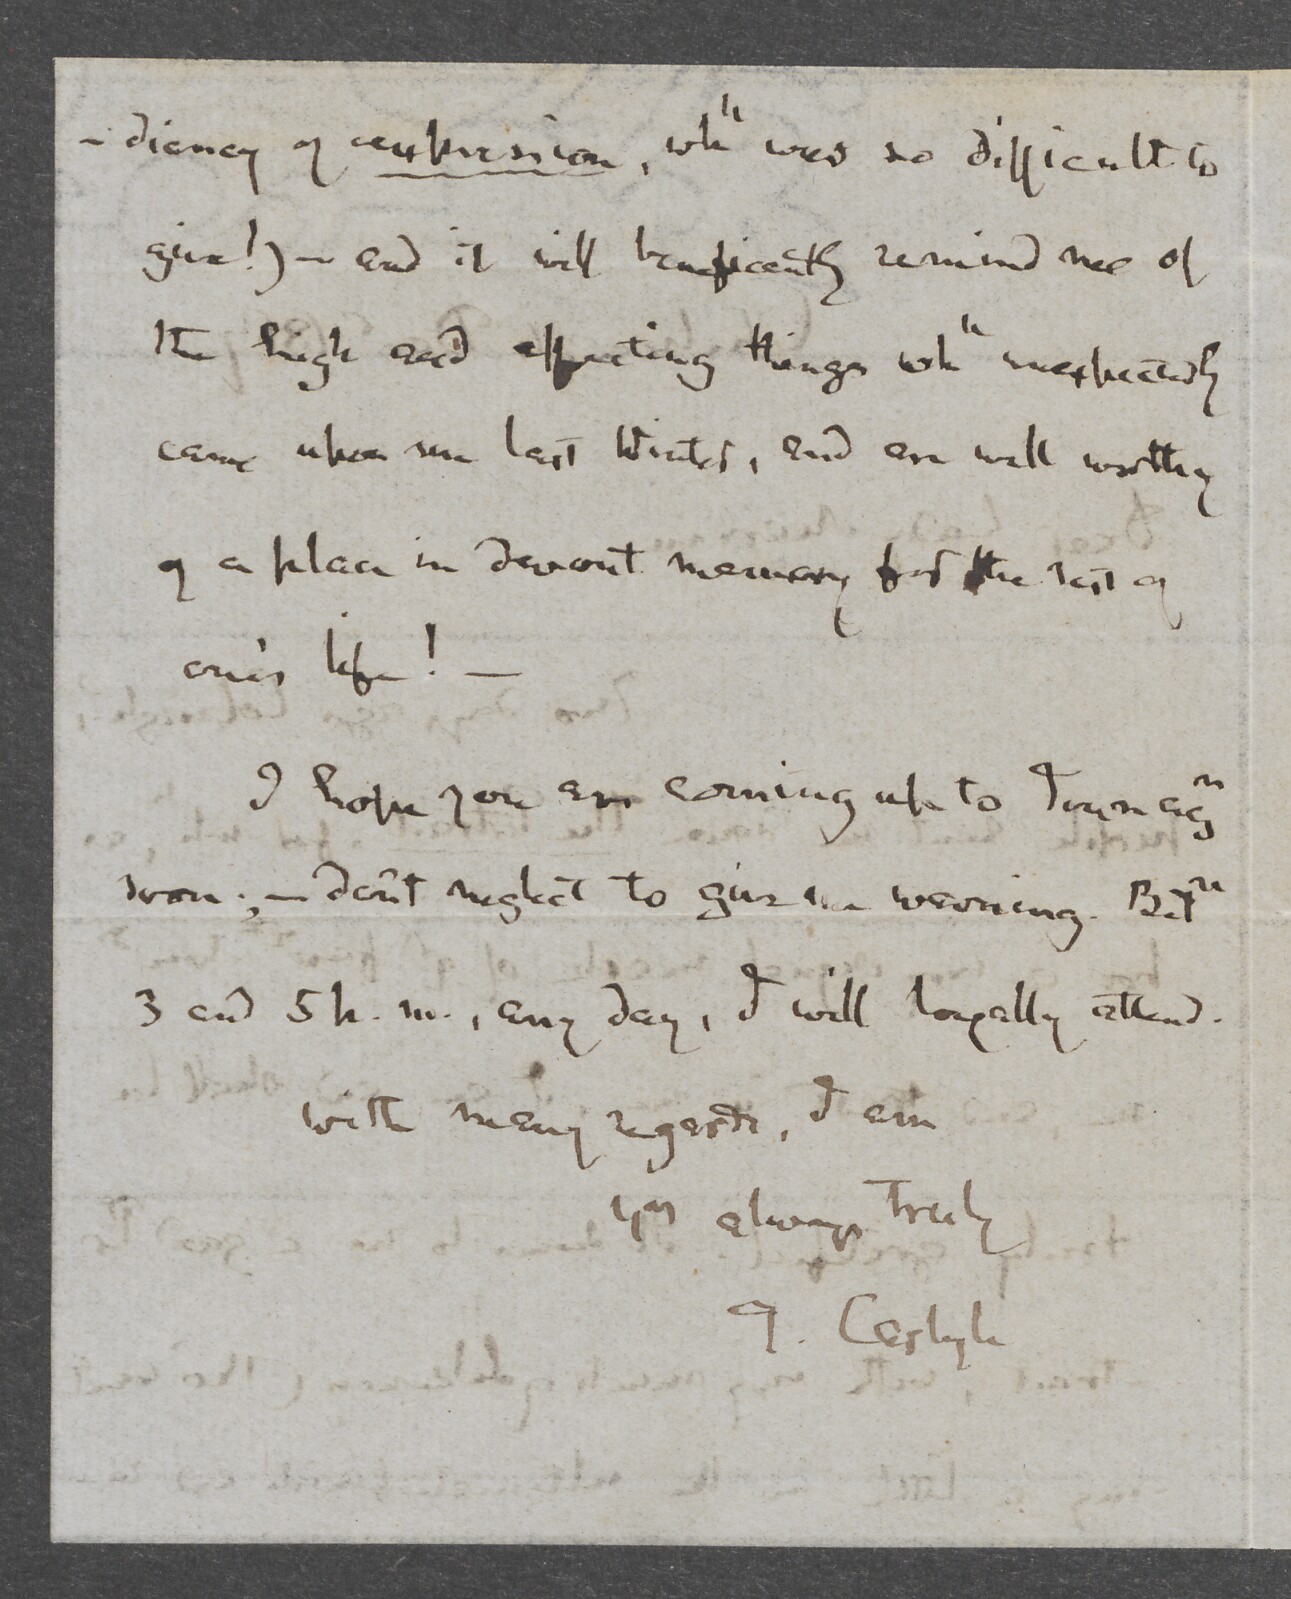 -diency of expression, wh^h was so difficult to
give!) — and it will beneficently remind me of
the high and affecting things wh^h unexpectedly
came upon me last Winter, and are well worthy
of a place in devout memory for the rest of
one's life! —
I hope you are coming up to Town ag^n
soon; — don't neglect to give me warning. Bet^n
3 and 5 p.m., any day, I will loyally attend.
with many regards, I am
Y^rs always truly
T. Carlyle